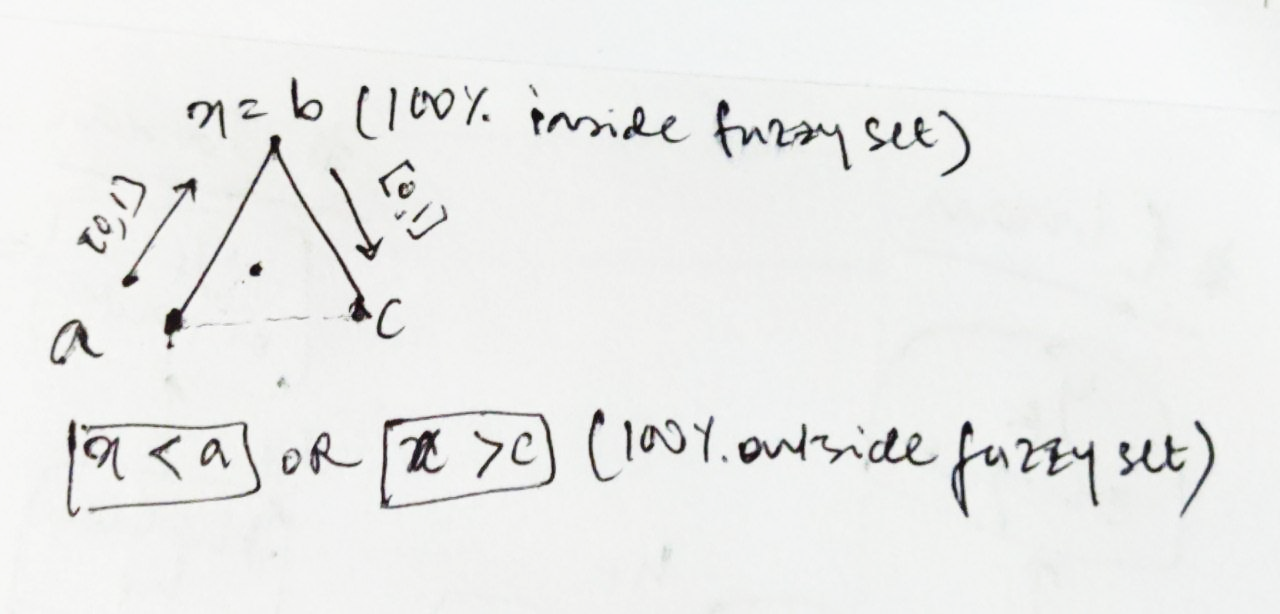 x = b (100% inside fuzzy set)
[0,1]
[0,1]
a
C
x < a OR x > c (100% outside fuzzy set)